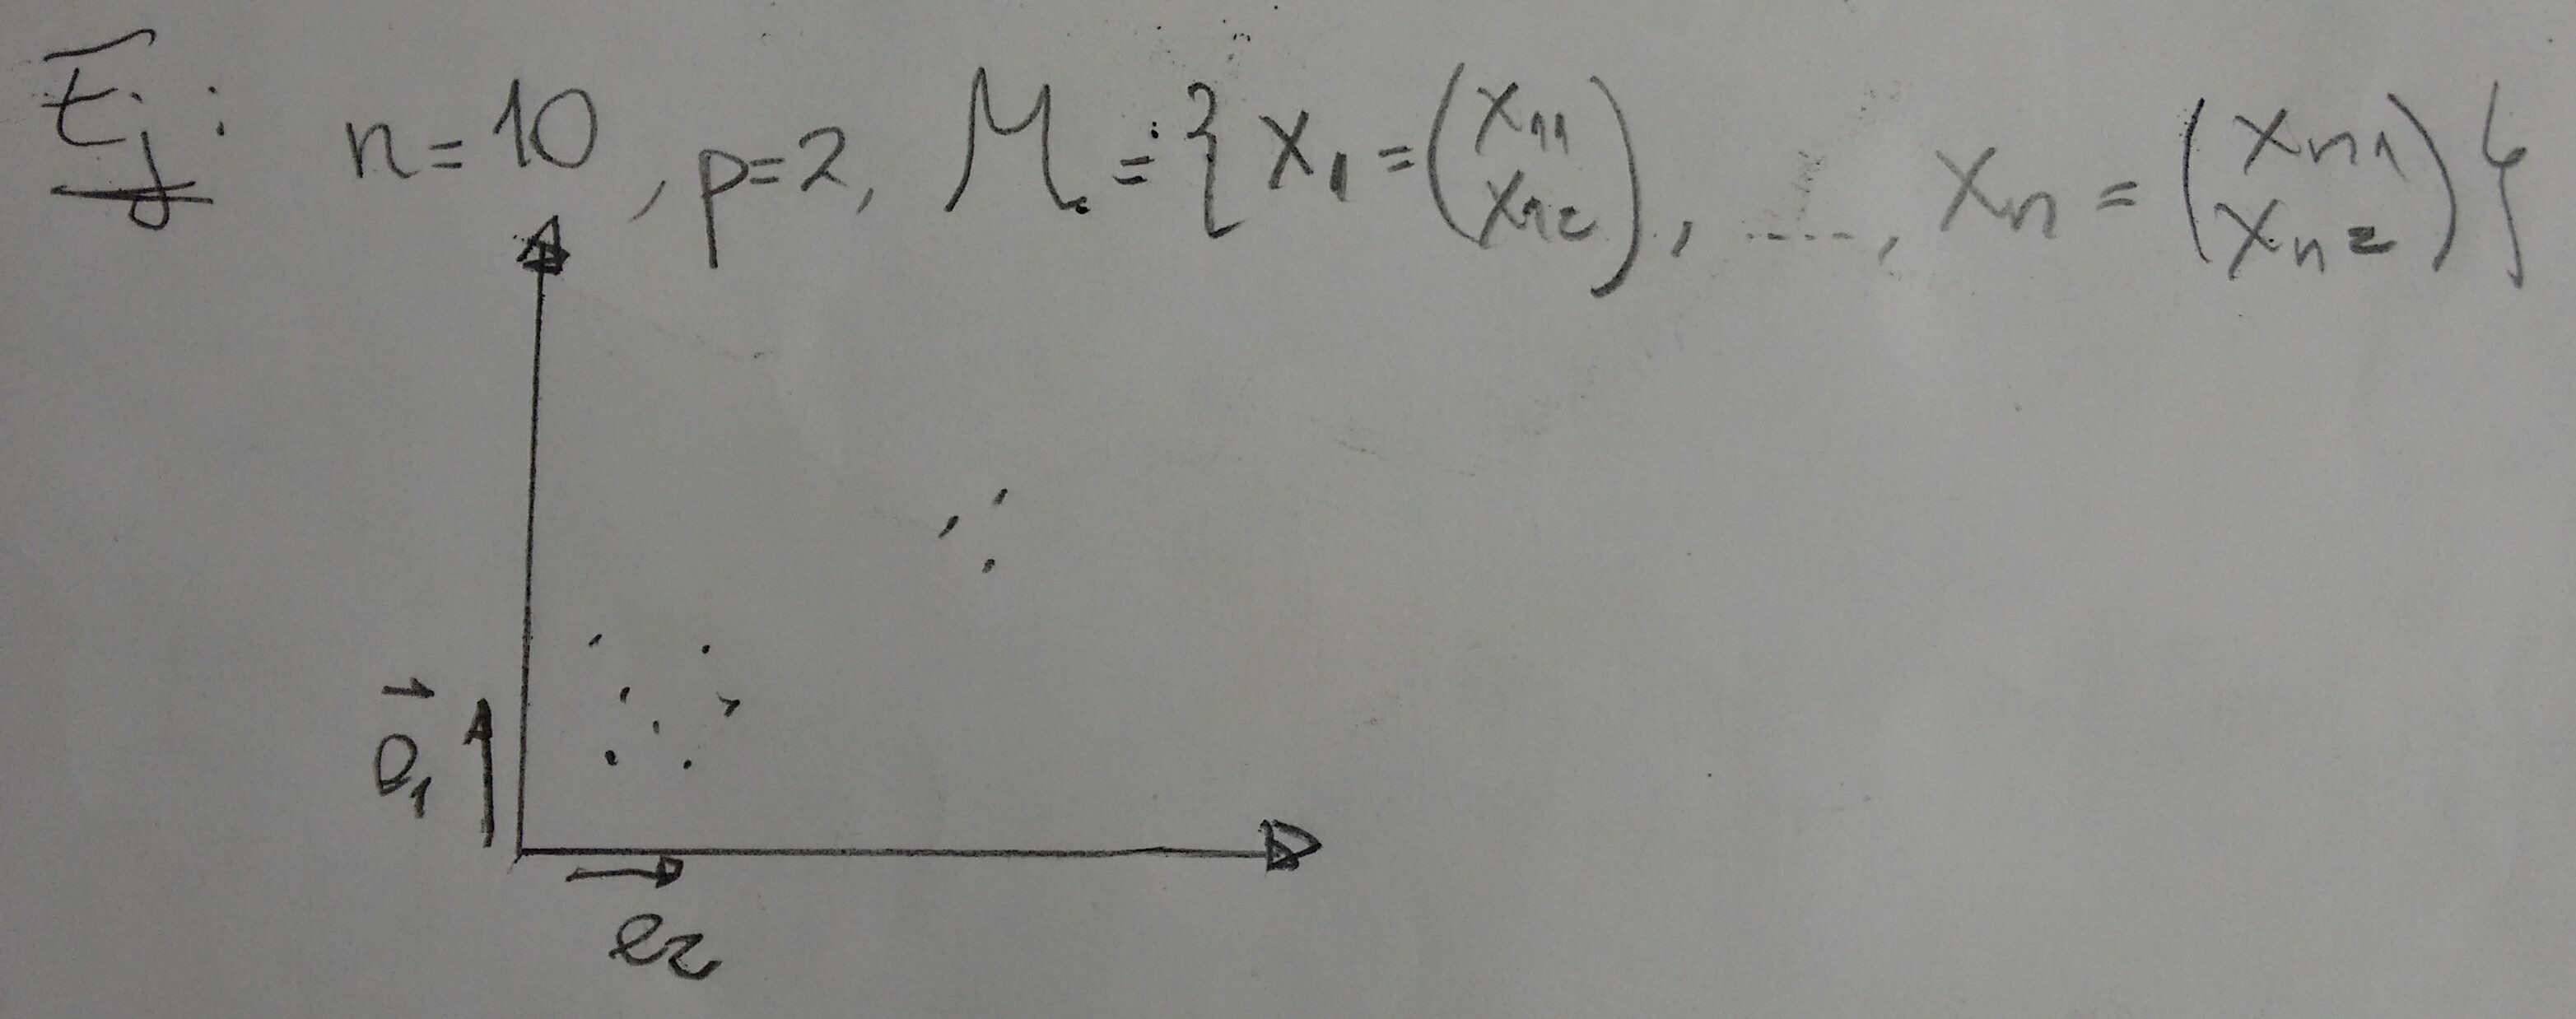 Ej: n=10, p=2, M = { x₁ = (x₁₁ x₁₂), ....., xₙ = (xₙ₁ xₙ₂) }
e⃗₁
e⃗₂